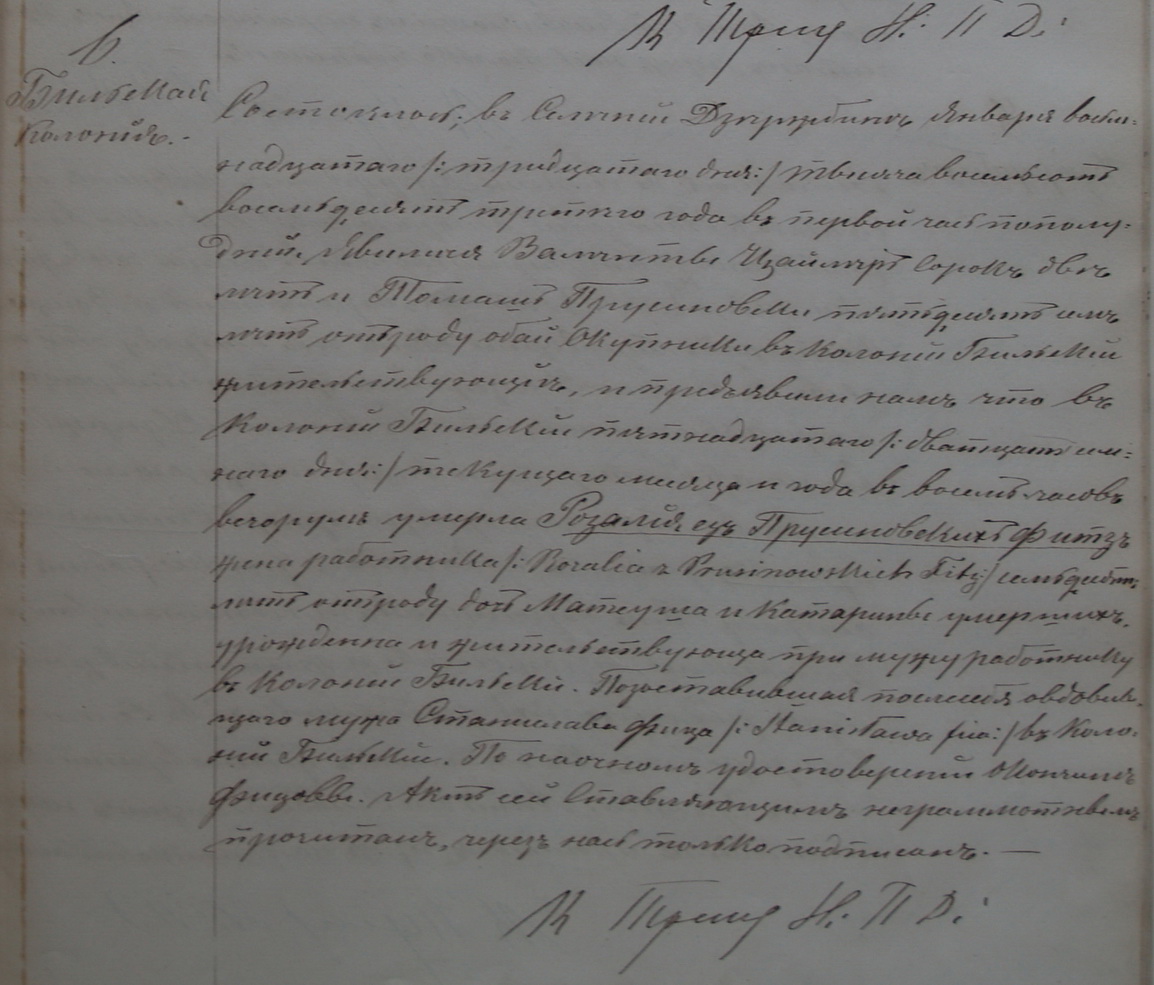 К Трищ Н: П Д:
6.
Бильская
Колонія.-
Состоялось, въ Селеній Дзержбинь Января восем=
надцатаго /: тридцатаго дня :/ тысяча восемьсотъ
восемьдесятъ третяго года въ первой часъ пополу=
дній. Явились Валентый сорокъ два
лѣтъ и Томашъ Прусиновски пятьдесятъ семь
лѣтъ отъ роду обай Окупники въ Колоній Бильскій
жительствующіи, и предъявили намъ что въ
Колоній Бильскій пятнадцатаго /: дватцать сем=
наго дня :/ текущаго месяца и года въ восемь часовъ
вечорумъ умерла Розалія езъ Прусиновскихъ Фитзъ
жена работника /: Rozalia z Prusinowskich Fitz :/ семьдесятъ
лѣтъ отъ роду дочь Матеуша и Катарины умершихъ.
урожденна и жительствующа при мужу работнику
въ Колоній Бильскій. Позоставившая послѣ себя овдовел=
щаго мужа Станислава Фица /: Stanisława Fica :/ въ Коло=
ній Бильскій. По наочномъ удостовереній Окончинѣ
Фицовы. Актъ сей Ставляющимъ неграммотнымъ
прочитанъ, черезъ насъ только подписанъ. —
К Трищ Н: П Д: